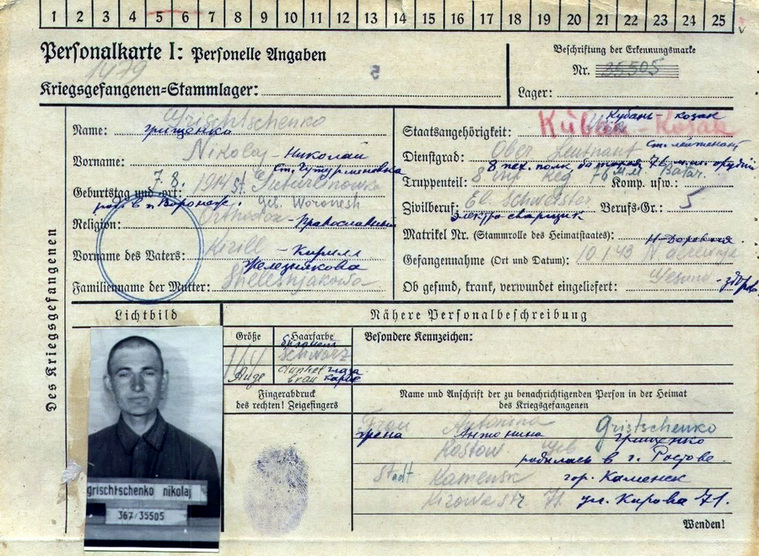 1 2 3 4 5 6 7 8 9 10 11 12 13 14 15 16 17 18 19 20 21 22 23 24 25
Personalkarte I: Personelle Angaben
1479
5
Kriegsgefangenen-Stammlager:
Beschriftung der Erkennungsmarke
Nr. 35505
Lager:
Des Kriegsgefangenen
Grischtschenko
Name: грищенко
Vorname: Nikolaj Николай
ст. Гутурленовка
Geburtstag und -ort: 7.8. 1914 st.
родв. г. Воронеж. geb. Woronesh
Religion: Orthodox - Православный
Vorname des Vaters: Kirill - Кирилл
Железнякова
Familienname der Mutter: Shelesnjakowa
Кубань - козак
Staatsangehörigkeit: Kuban - Kosak
Dienstgrad: Ober Leutnant ст. лейтенант
8 пех. полк 76 м.м. орудий
Truppenteil: 8 Inf Reg 76 мм Komp. usw.: Batar.
Zivilberuf: El. Schweisser Berufs-Gr.: 5
электро сварщик
Matrikel Nr. (Stammrolle des Heimatstaates):
Gefangennahme (Ort und Datum): 10.1.43
Ob gesund, krank, verwundet eingeliefert: Gesund - здор.
Lichtbild
Nähere Personalbeschreibung
Größe
Haarfarbe
Besondere Kennzeichen:
164
schwarz
Auge
dunkel глаза
braun карие
Fingerabdruck
des rechten! Zeigefingers
Name und Anschrift der zu benachrichtigenden Person in der Heimat
des Kriegsgefangenen
Frau Antonina Gristschenko
Антонина Грищенко
Rostow geb
родилась в г. Ростове
Stadt Kamensk гор. Каменск
Kirowa str 71 ул. Кирова 71.
grischtschenko nikolaj
367/35505
Wenden!